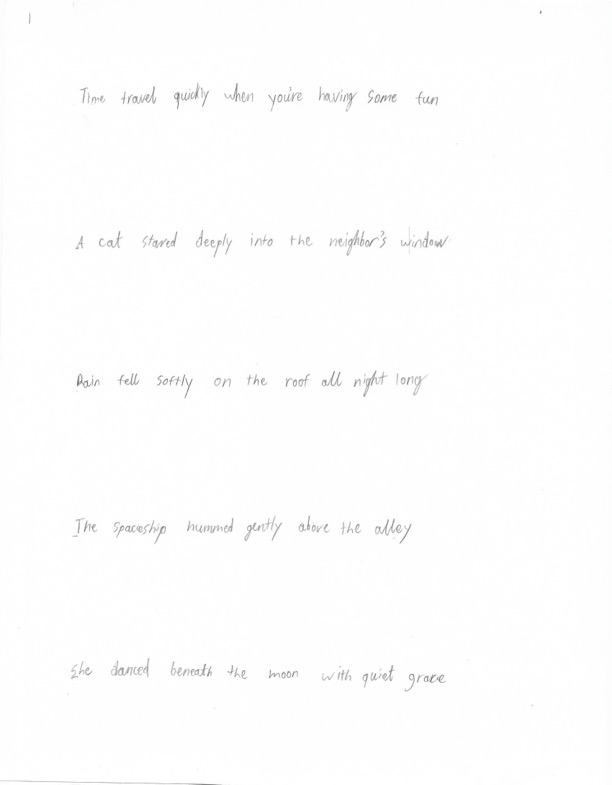 1
Time travel quickly when you're having some fun
A cat stared deeply into the neighbor's window
Rain fell softly on the roof all night long
The spaceship hummed gently above the alley
She danced beneath the moon with quiet grace